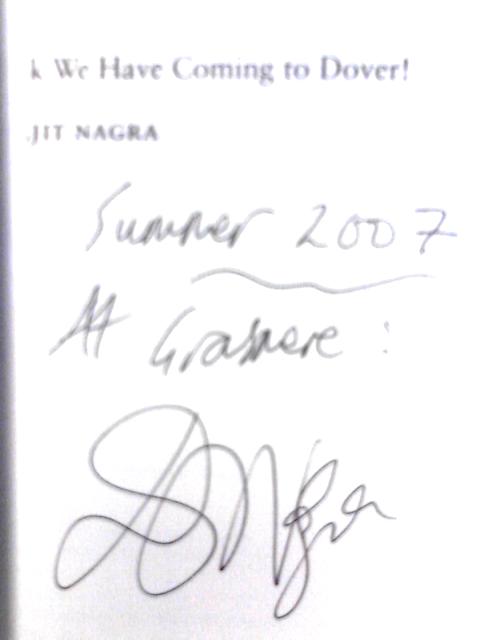 k We Have Coming to Dover!
JIT NAGRA
Summer 2007
At Grasmere:
D Nagra